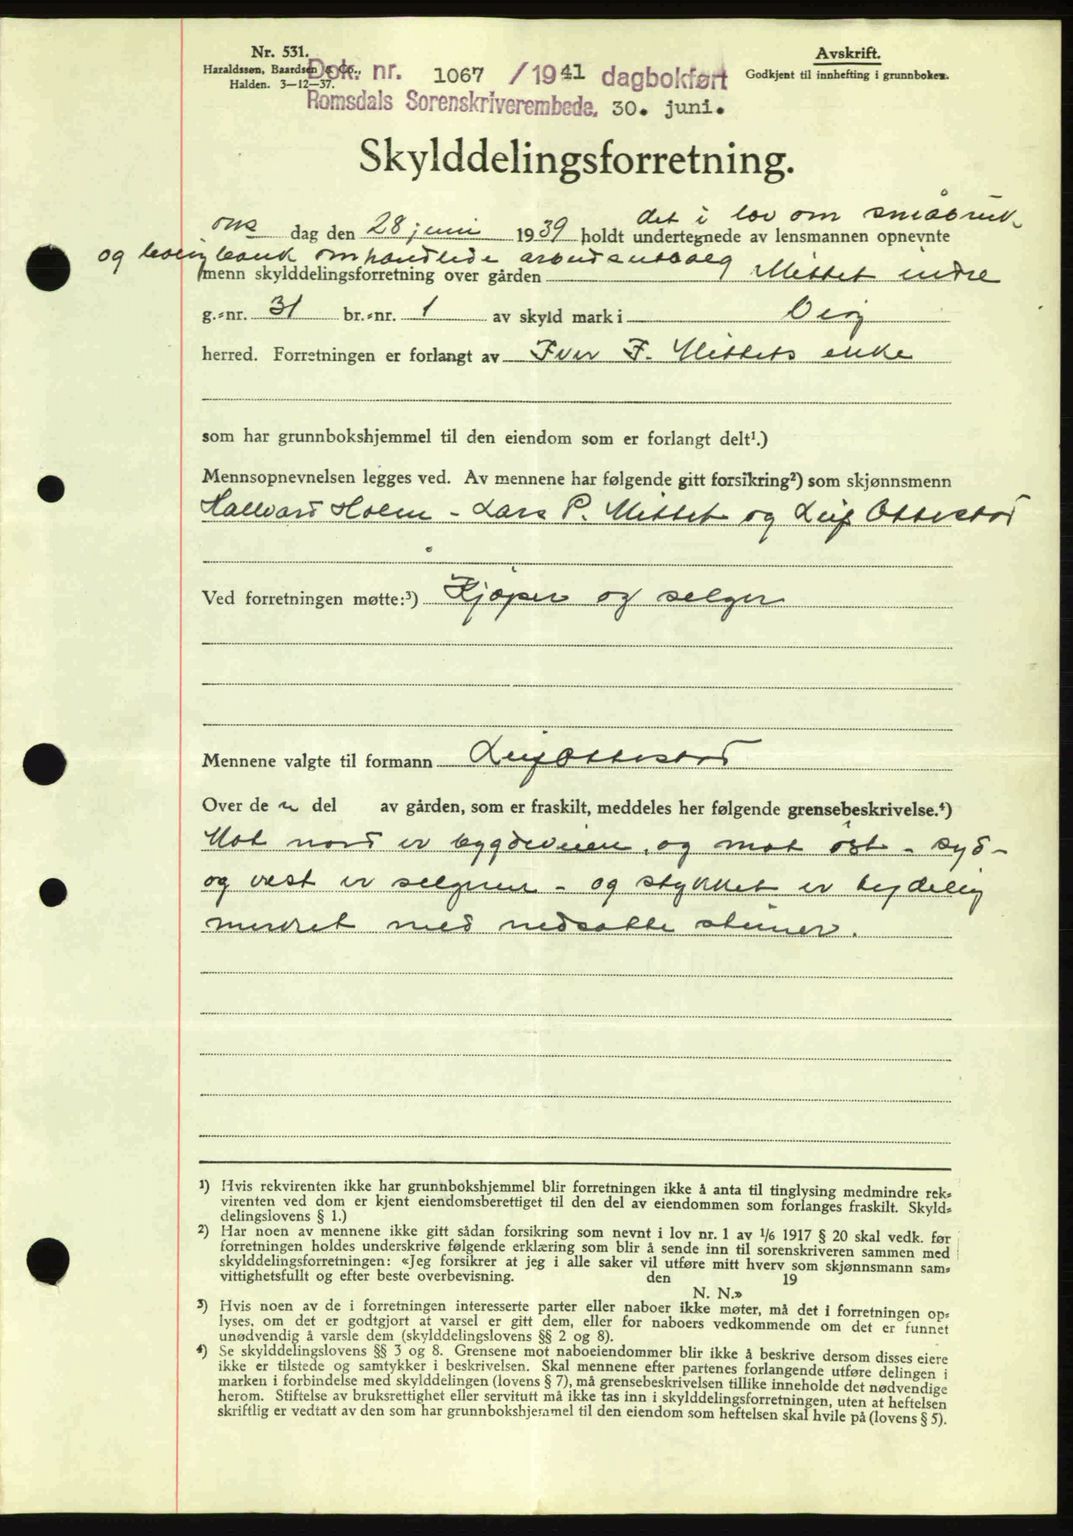 Nr. 531.
Haraldssøn, Baardsen & Co.,
Halden. 3—12—37.
Dok. nr. 1067 / 1941 dagbokført
Romsdals Sorenskriverembede. 30. juni.
Avskrift.
Godkjent til innhefting i grunnboken.
Skylddelingsforretning.
det i lov om småbruk-
ons dag den 28 juni 1939 holdt undertegnede av lensmannen opnevnte
og bolig bank omhandlede arbeidsutvalg
menn skylddelingsforretning over gården Mittet indre
g.-nr. 31 br.-nr. 1 av skyld mark i Veøy
herred. Forretningen er forlangt av Iver F. Mittets enke
som har grunnbokshjemmel til den eiendom som er forlangt delt¹.)
Mennsopnevnelsen legges ved. Av mennene har følgende gitt forsikring²) som skjønnsmenn
Hallvard Holm - Lars P. Mittet og Leif Ottestad
Ved forretningen møtte:³) Kjøper og selger
Mennene valgte til formann Leif Ottestad
Over de n del av gården, som er fraskilt, meddeles her følgende grensebeskrivelse.⁴)
Mot nord er bygdeveien, og mot øst - syd -
og vest er selgeren - og stykket er tydelig
merket med nedsatte steiner.
¹) Hvis rekvirenten ikke har grunnbokshjemmel blir forretningen ikke å anta til tinglysing medmindre rek-
virenten ved dom er kjent eiendomsberettiget til den del av eiendommen som forlanges fraskilt. Skyld-
delingslovens § 1.)
²) Har noen av mennene ikke gitt sådan forsikring som nevnt i lov nr. 1 av 1/6 1917 § 20 skal vedk. før
forretningen holdes underskrive følgende erklæring som blir å sende inn til sorenskriveren sammen med
skylddelingsforretningen: «Jeg forsikrer at jeg i alle saker vil utføre mitt hverv som skjønnsmann sam-
vittighetsfullt og efter beste overbevisning. den 19
N. N.»
³) Hvis noen av de i forretningen interesserte parter eller naboer ikke møter, må det i forretningen op-
lyses, om det er godtgjort at varsel er gitt dem, eller for naboers vedkommende om det er funnet
unødvendig å varsle dem (skylddelingslovens §§ 2 og 8).
⁴) Se skylddelingslovens §§ 3 og 8. Grensene mot naboeiendommer blir ikke å beskrive dersom disses eiere
ikke er tilstede og samtykker i beskrivelsen. Skal mennene efter partenes forlangende utføre delingen i
marken i forbindelse med skylddelingen (lovens § 7), må grensebeskrivelsen tillike inneholde det nødvendige
herom. Stiftelse av bruksrettighet eller servitutt må ikke tas inn i skylddelingsforretningen, uten at heftelsen
skriftlig er vedtatt av den som har grunnbokshjemmel til den eiendom som heftelsen skal hvile på (lovens § 5).